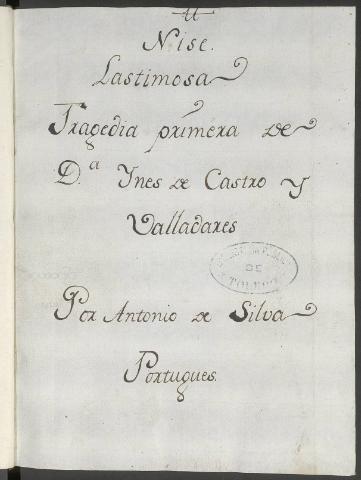 Nise.
Lastimosa
Tragedia primera de
D.ª Ynes de Castro y
Valladares
DE
TOLEDO
Por Antonio de Silva
Portugues.